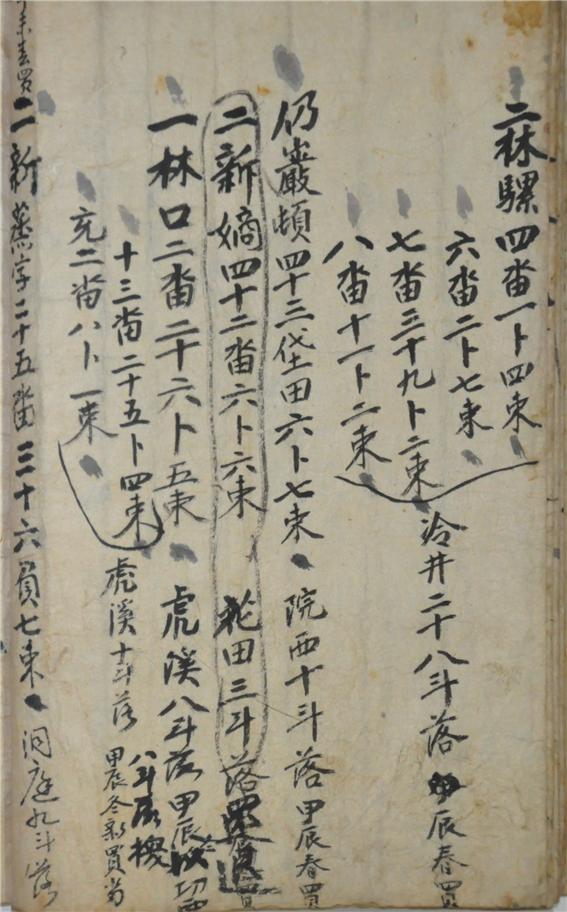 二林騾四畓一卜四束
六畓二卜七束
七畓三十九卜二束
八畓十一卜二束
冷井二十八斗落甲辰春買
仍巖頓四十三垈田六卜七束
院西十斗落甲辰春買
二新嫡四十二畓六卜六束
田三斗落
一林口二畓二十六卜五束
虎溪八斗落甲辰
十三畓二十五卜四束
八斗
充二畓八卜一束
虎溪十斗落甲辰冬新買
未春買
二新蒸字二十五畓三十六負七束
洞庭九斗落